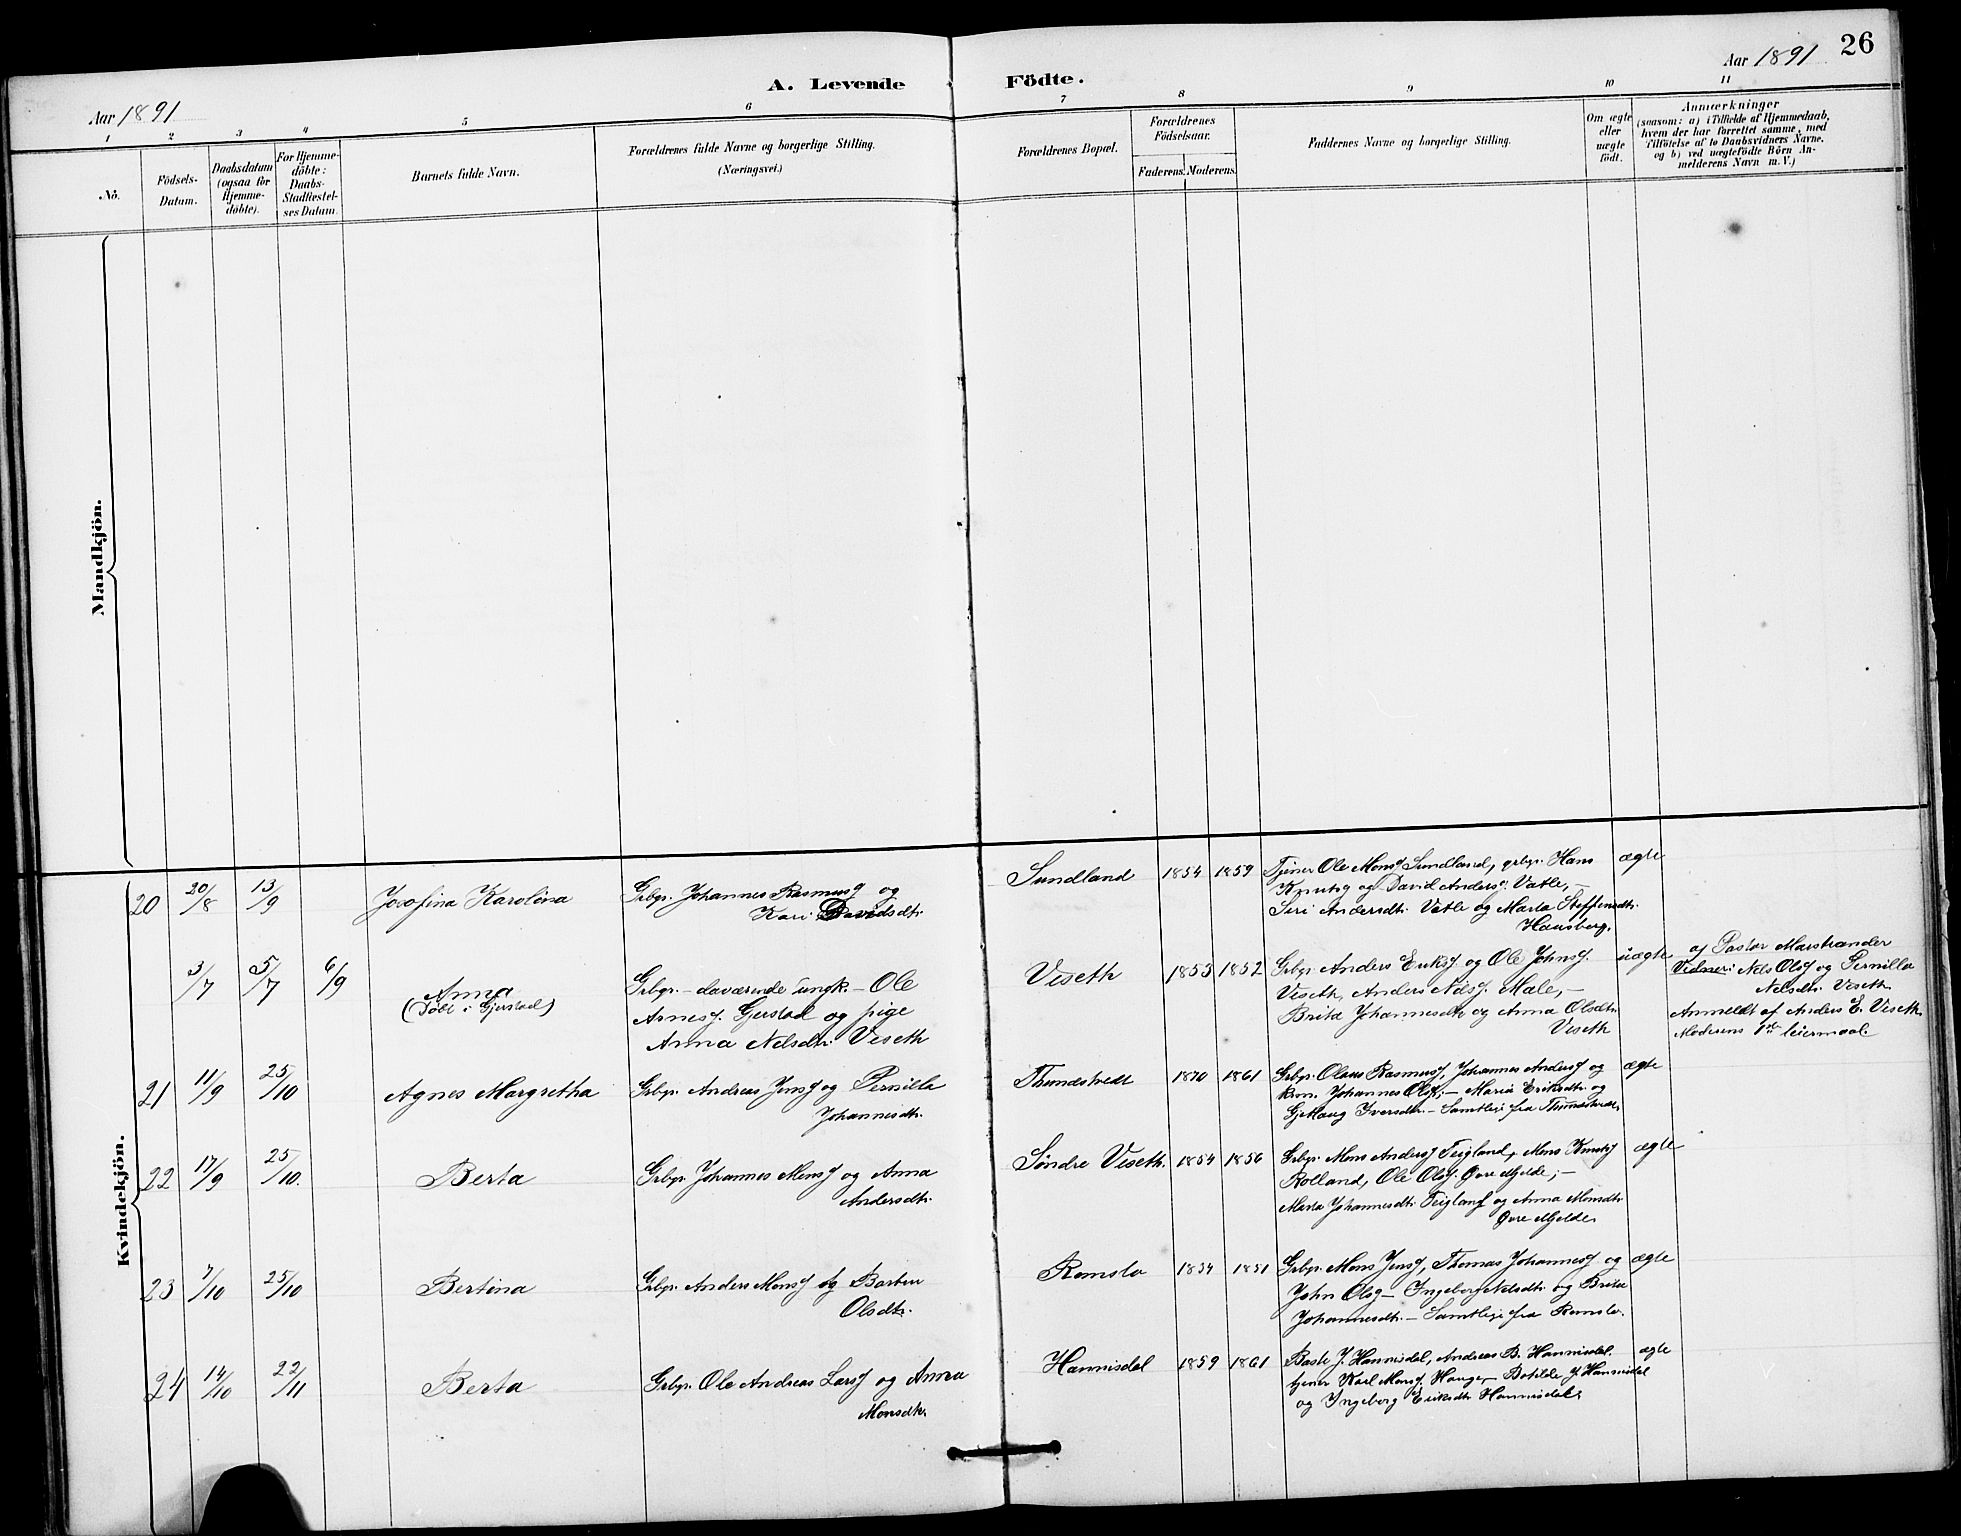 26
Aar 1891
A. Levende Födte.
Aar 1891
1 2 3 4 5 6 7 8 9 10 11
No.
Födsels-
Datum.
Daabsdatum
(ogsaa for
Hjemme-
döbte).
For Hjemme-
döbte:
Daabs-
Stadfæstel-
ses Datum.
Barnets fulde Navn.
Forældrenes fulde Navne og borgerlige Stilling.
(Næringsvei.)
Forældrenes Bopæl.
Forældrenes
Födselsaar.
Faderens. Moderens.
Faddernes Navne og borgerlige Stilling.
Om ægte
eller
uægte
födt.
Anmærkninger
(saasom: a) i Tilfælde af Hjemmedaab,
hvem der har forrettet samme, med
Tilföielse af to Daabsvidners Navne,
og b) ved uægtefödte Börn An-
melderens Navn m. V.)
Mandkjön.
Kvindekjön.
20 20/8 13/9 Josefina Karolina
Grbgr. Johannes Rasmusş og
Kari Davidsdtr.
Sundland 1854 1859
Tjener Ole Monsş Sundland, grbgr. Hans
Knutsş og David Andersş. Vatle, –
Siri Andersdtr. Vatle og Marta Steffensdtr.
Hausberg.
ægte
3/7 5/7 6/9 Anna
(Döbt i Gjerstad)
Grbgr. – daværende ungk. – Ole
Arnesş. Gjerstad og pige
Anna Nelsdtr. Veseth
Veseth 1853 1852
Grbgr. Anders Eriksş. og Ole Johnsş.
Veseth, Anders Nelsş. Mæle, –
Brita Johannesdtr. og Anna Olsdtr.
Veseth
uægte
af Pastor Marstrander
Vidner: Nels Olsş og Pernilla
Nelsdtr. Veseth
Anmeldt af Anders E. Veseth
Moderens 1ste leiermaal.
21 11/9 25/10 Agnes Margretha
Grbgr. Andreas Jensş og Pernilla
Johannesdtr.
Thunestvedt 1870 1861
Grbgr. Olaus Rasmusş, Johannes Andersş og
Johannes Olsş, – Maria Eriksdtr. og
Gjertaug Iversdtr. – Samtlige fra Thunestvedt.
ægte
22 17/9 25/10. Berta
Grbgr. Johannes Monsş og Anna
Andersdtr.
Söndre Veseth. 1854 1856
Grbgr. Mons Andersş Teigland, Mons Knutsş
Rolland, Ole Olsş. Övre Mjelde; –
Marta Johannesdtr. Teigland og Anna Monsdtr.
Övre Mjelde.
ægte
23 7/10 25/10 Bertina
Grbgr. Anders Monsş og Barbru
Olsdtr.
Romslo 1834 1851
Grbgr. Mons Jensş, Thomas Johannesş og
John Olsş – Ingeborg Nelsdtr. og Brita
Johannesdtr. – Samtlige fra Romslo.
ægte
24 14/10 22/11 Berta
Grbgr. Ole Andreas Larsş og Anna
Monsdtr.
Hannisdal 1859 1861
Baste J. Hannisdal, Andreas B. Hannisdal
tjener Karl Monsş. Hauge, – Botilde J. Hannisdal
og Ingeborg Eriksdtr Hannisdal.
ægte